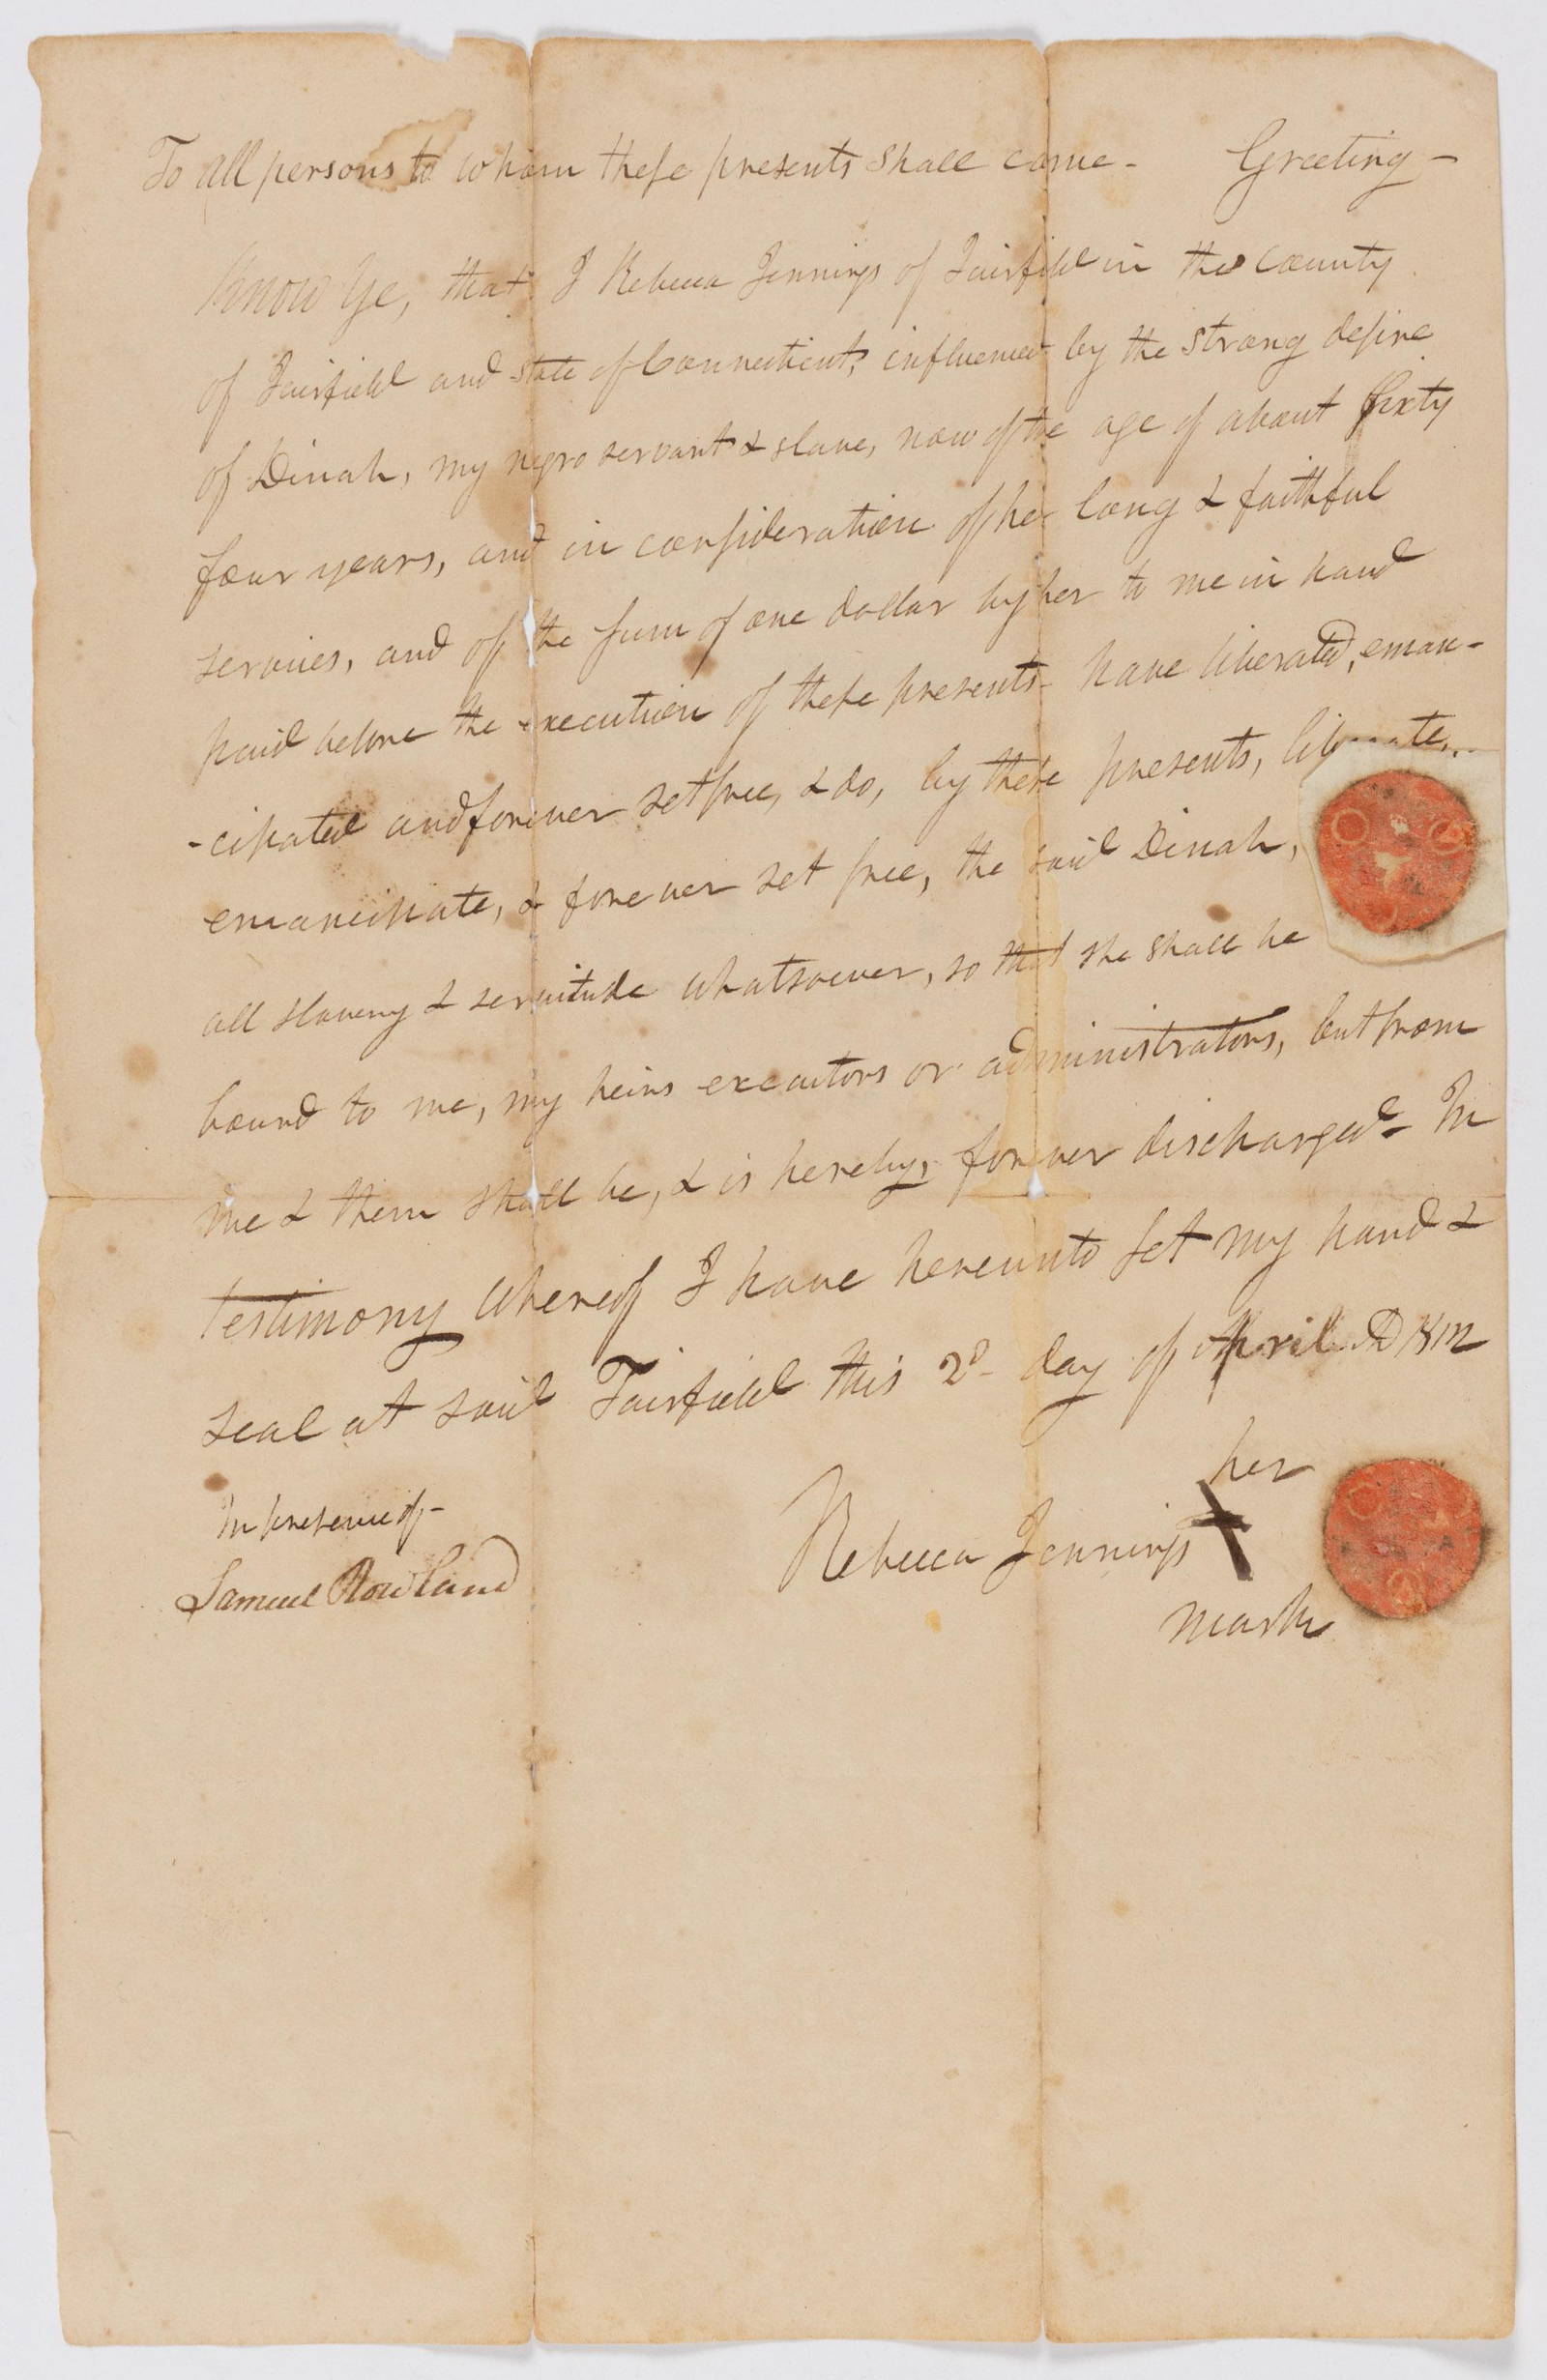 To all persons to whom these presents shall come - Greeting -
Know Ye, that I Rebecca Jennings of Fairfield in the county
of Fairfield and state of Connecticut, influenced by the strong desire
of Dinah, my negro servant & slave, now of the age of about sixty
four years, and in consideration of her long & faithful
services, and of the sum of one dollar by her to me in hand
paid before the execution of these presents have liberated, eman-
-cipated and forever set free, & do, by these presents, liberate,
emancipate, & forever set free, the said Dinah,
all slavery & servitude whatsoever, so that she shall be
bound to me, my heirs executors or administrators, but from
me & them shall be, & is hereby, forever discharged - In
testimony whereof I have hereunto set my hand &
seal at said Fairfield this 2d day of April AD 1812
In presence of - her
Samuel Rowland Rebecca Jennings X
mark